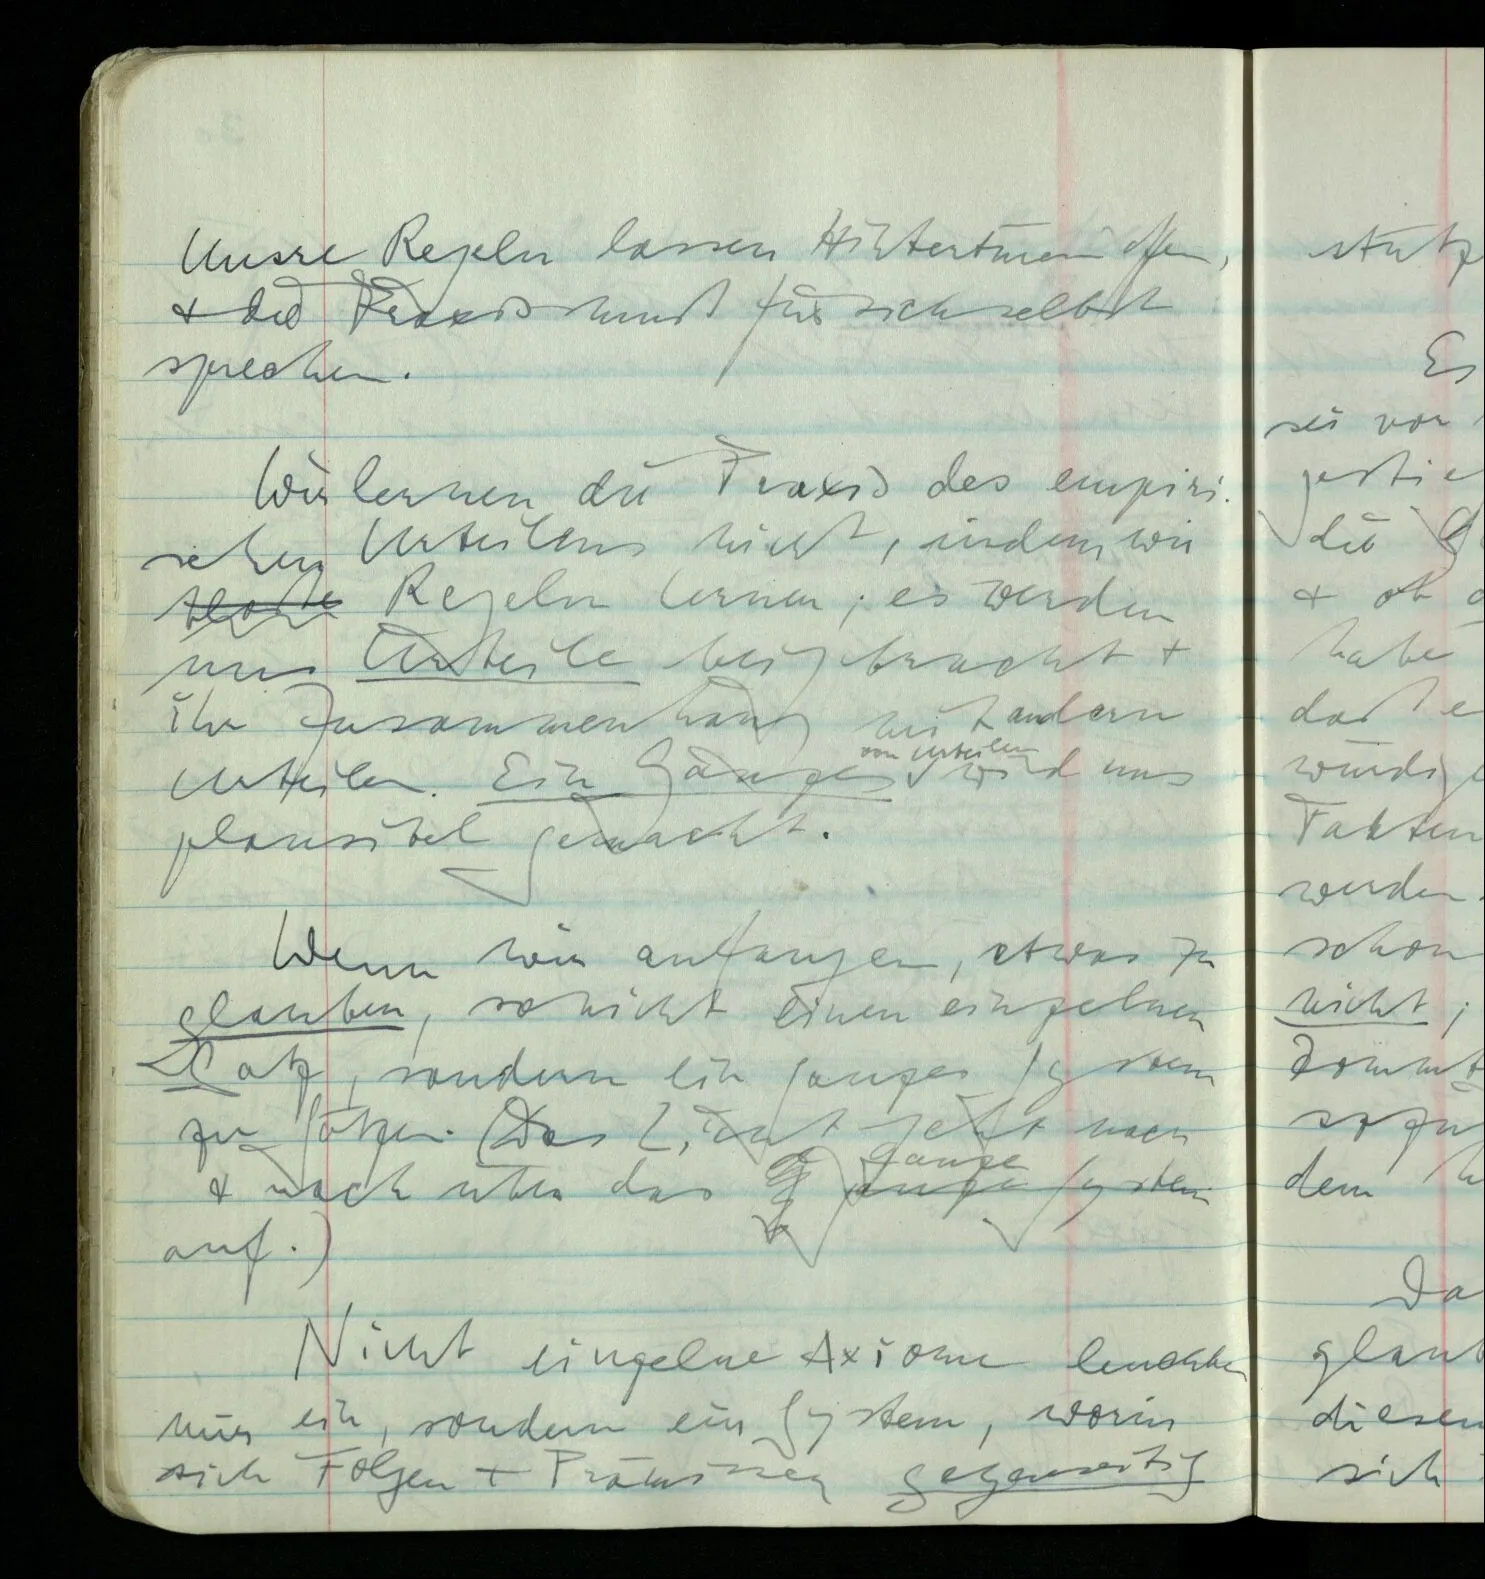 Unsre Regeln lassen Hintertüren offen,
& die Praxis muß für sich selbst
sprechen.
Wir lernen die Praxis des empiri-
schen Urteilens nicht, indem wir
Regeln lernen; es werden
uns Urteile beigebracht &
ihr Zusammenhang mit andern
von Urteilen
Urteilen. Ein Ganzes wird uns
plausibel gemacht.
Wenn wir anfangen, etwas zu
glauben, so nicht einen einzelnen
Satz, sondern ein ganzes System
zu Sätzen. (Das Licht geht nach
ganze
& nach über das ganze System
auf.)
Nicht einzelne Axiome leuchten
mir ein, sondern ein System, worin
sich Folgen & Prämissen gegenseitig
stütz
Es
sei vor
die
& ob
habe
daß e
würdig
Fakten
werden
schon
nicht;
kommt
sozu
dem
Da
glaub
diesen
sich